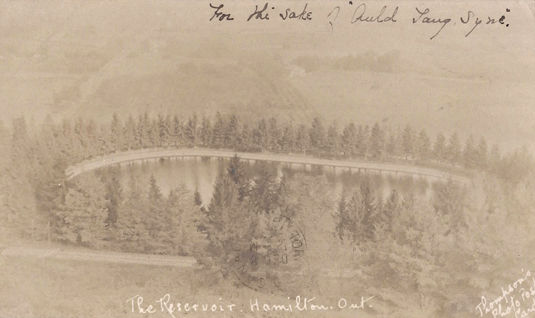 For the sake of "Auld Lang Syne".
The Reservoir. Hamilton. Ont.
Thompson's
Photo Post
Card